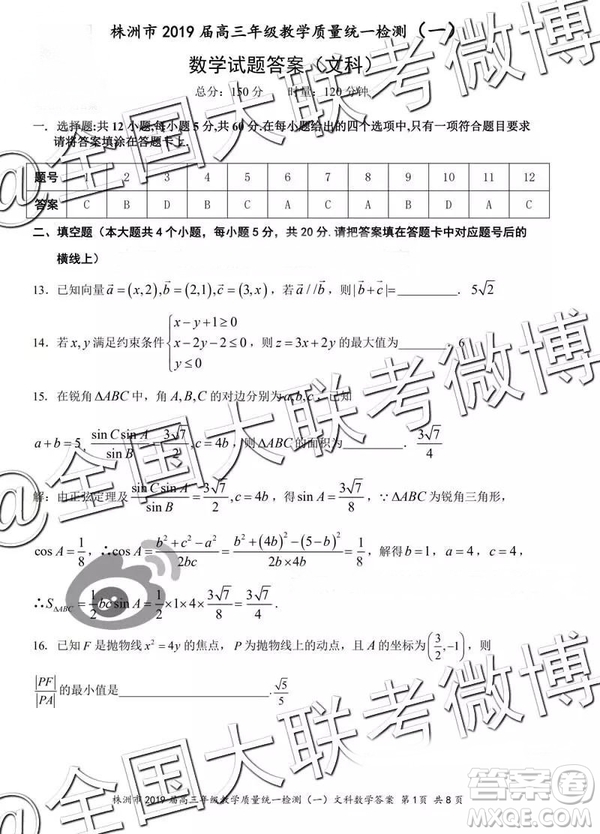 株洲市 2019 届高三年级教学质量统一检测（一）
数学试题答案（文科）
总分：150 分 时量：120 分钟
一．选择题:共 12 小题,每小题 5 分,共 60 分.在每小题给出的四个选项中,只有一项符合题目要求
请将答案填涂在答题卡上.
题号 1 2 3 4 5 6 7 8 9 10 11 12
答案 C B D C B A C A C
二、填空题（本大题共 4 个小题，每小题 5 分，共 20 分.请把答案填在答题卡中对应题号后的
横线上）
13．已知向量 a⃗=(x,2),b⃗=(2,1),c⃗=(3,x)，若 a⃗//b⃗，则|b⃗+c⃗|=__________．5√2
14．若 x,y 满足约束条件 {x-y+1≥0 x-2y-2≤0 y≤0，则 z=3x+2y 的最大值为______．6
15．在锐角 ΔABC 中，角 A,B,C 的对边分别为 a,b,c，已知
a+b=5, sinCsinA/sinB=3√7/2,c=4b，则 ΔABC 的面积为______．3√7/4
解：由正弦定理及 sinCsinA/sinB=3√7/2,c=4b，得 sinA=3√7/8，∵ΔABC 为锐角三角形，
cosA=1/8，∴cosA=(b²+c²-a²)/2bc=(b²+(4b)²-(5-b)²)/(2b×4b)=1/8，解得 b=1，a=4，c=4
∴S△ABC=1/2bcsinA=1/2×1×4×3√7/8=3√7/4．
16．已知 F 是抛物线 x²=4y 的焦点，P 为抛物线上的动点，且 A 的坐标为(3/2,-1)，则
|PF|/|PA|的最小值是__________________．√5/5
株洲市 2019 届高三年级教学质量统一检测（一）文科数学答案 第 1 页 共 8 页
@全国大联考微博
@全国大联考微博
@全国大联考微博
答案圈
MXQE.COM